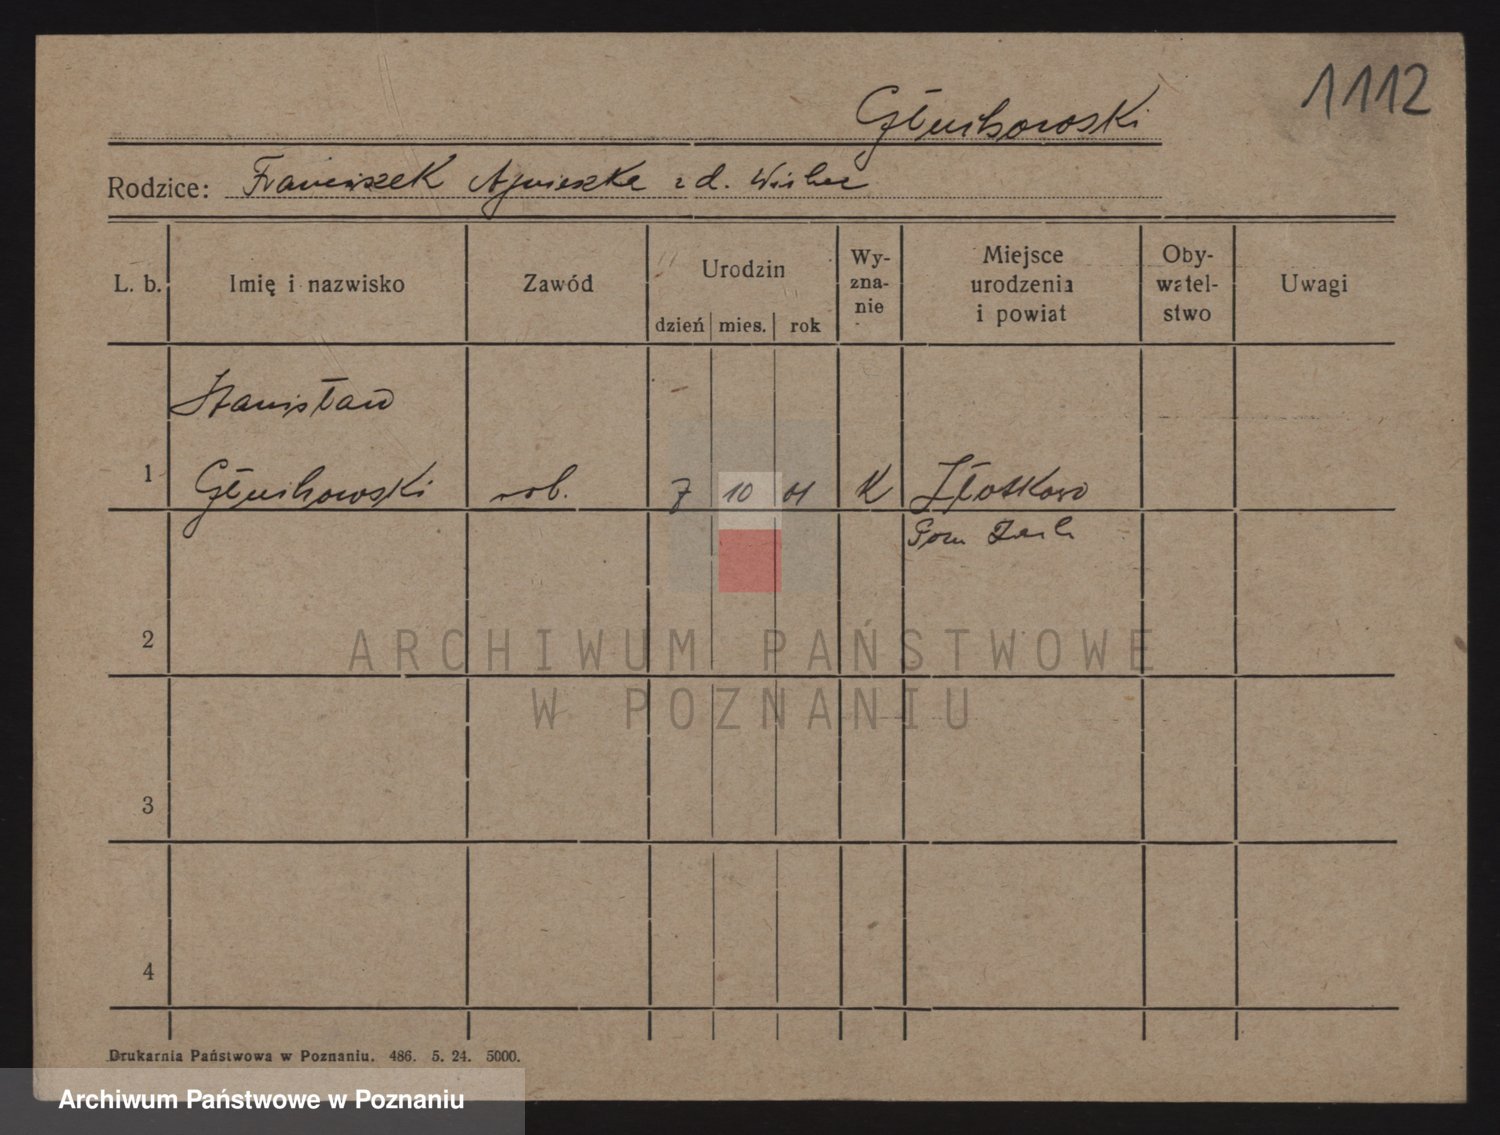 1112
Głuchowski
Rodzice: Franciszek Agnieszka z d.
L. b. Imię i nazwisko Zawód Urodzin dzień mies. rok Wy- zna- nie Miejsce urodzenia i powiat Oby- watel- stwo Uwagi
Stanisław
1 Głuchowski rob. 7 10 01 K Złotkowo
2
3
4
ARCHIWUM PAŃSTWOWE
W POZNANIU
Drukarnia Państwowa w Poznaniu. 486. 5. 24. 5000.
Archiwum Państwowe w Poznaniu